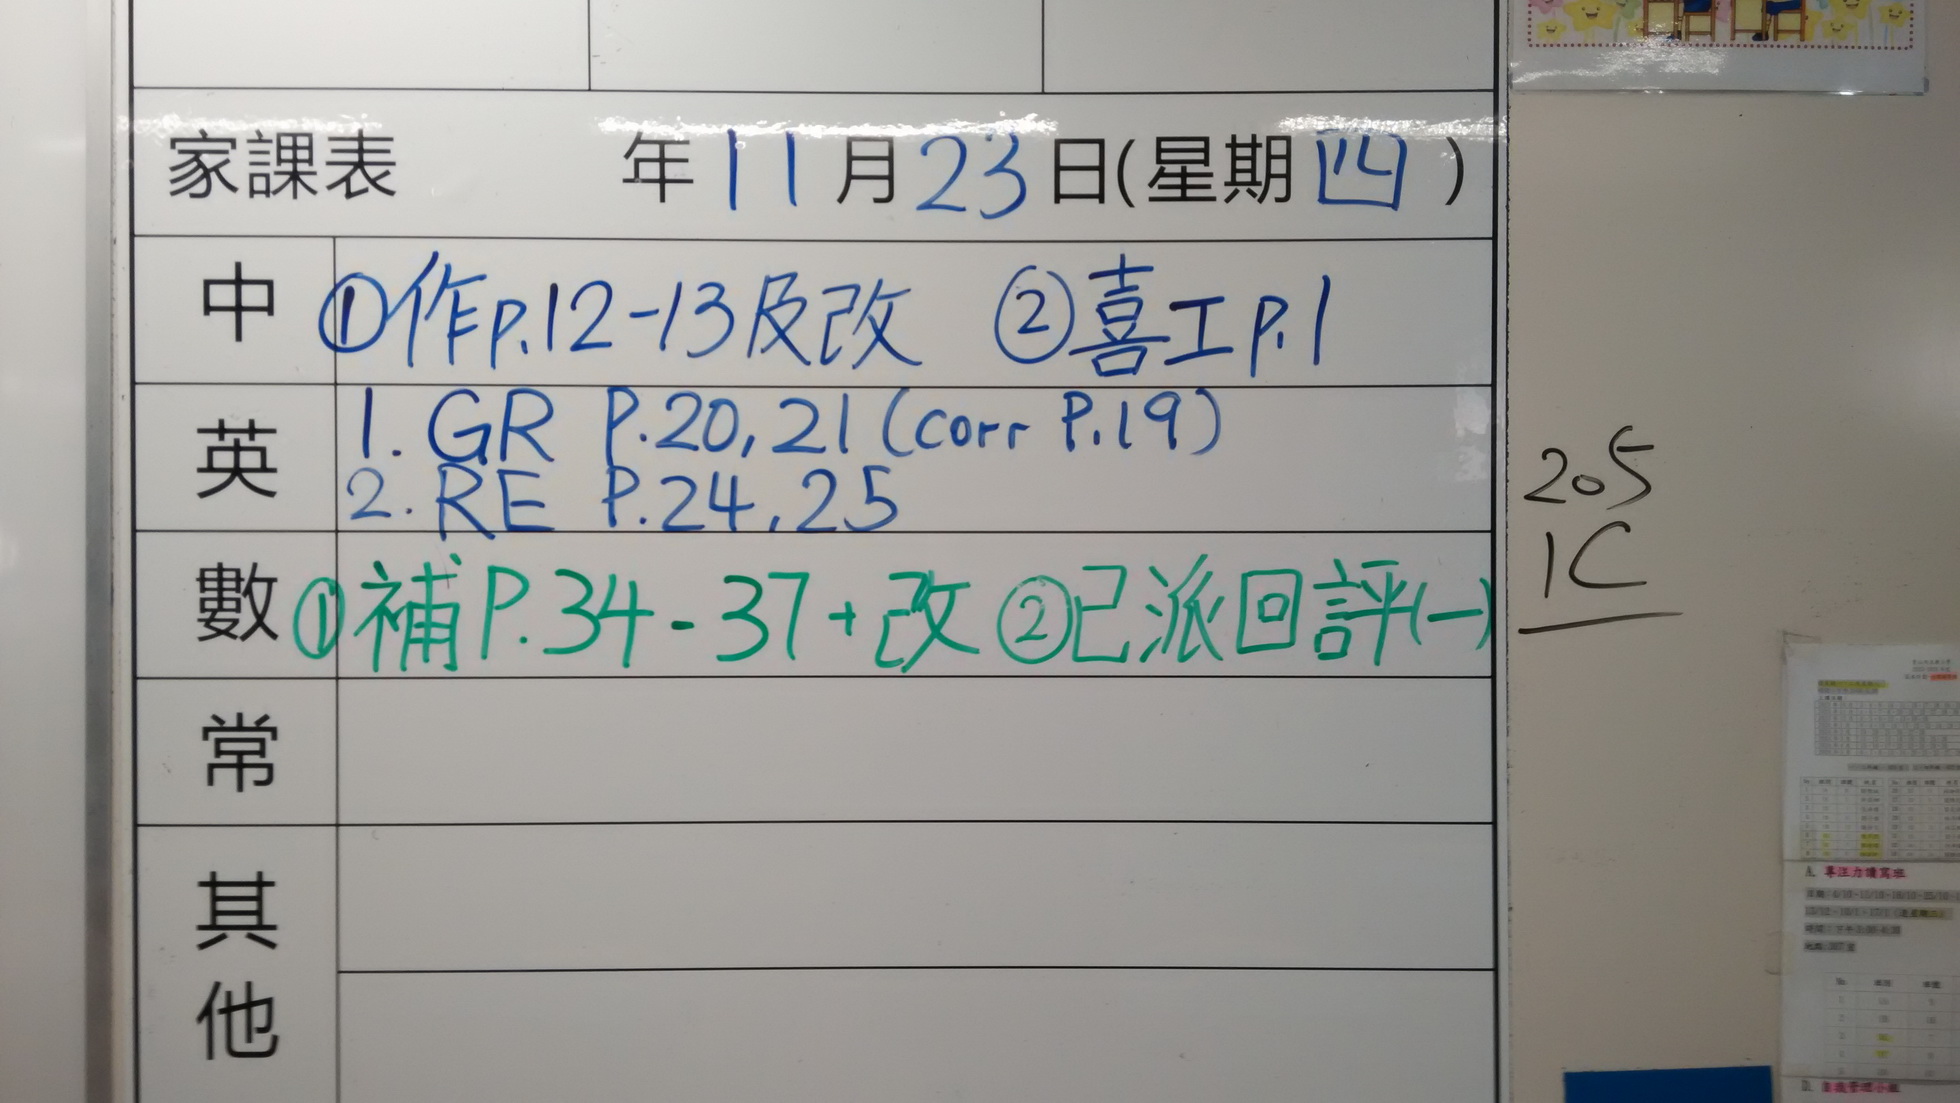 家課表 年11月23日(星期四)
中 ①作p.12-13及改 ②喜工p.1
英 1. GR P.20,21 (corr P.19)
2. RE P.24,25
數 ①補P.34-37+改 ②已派回評(一)
常
其他
205
1C
A. 專注力讀寫班